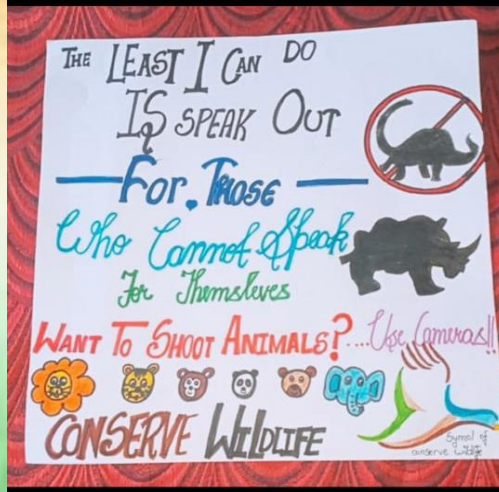 THE LEAST I CAN DO
IS SPEAK OUT
FOR THOSE
Who Cannot Speak
For Themsleves
WANT TO SHOOT ANIMALS?....Use Cameras!!
CONSERVE WILDLIFE
Symol of
conserve wildlife